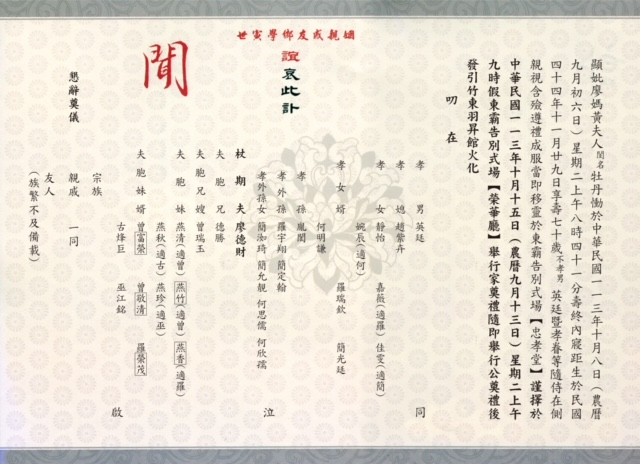 顯妣廖媽黃夫人閨名牡丹慟於中華民國一一三年十月八日（農曆
九月初六日）星期二上午八時四十一分壽終內寢距生於民國
四十四年十一月廿九日享壽七十歲不孝男英廷暨孝眷等隨侍在側
親視含殮遵禮成服當即移靈於東霸告別式場【忠孝堂】謹擇於
中華民國一一三年十月十五日（農曆九月十三日）星期二上午
九時假東霸告別式場【榮華廳】舉行家奠禮隨即舉行公奠禮後
發引竹東羽昇館火化
叨在
姻親戚友鄉學寅世
誼哀此訃
聞
孝男 英廷
孝媳 趙紫卉
孝女 靜怡 嘉薇（適羅） 佳雯（適簡）
婉辰（適何）
孝女婿 羅瑞欽 簡光廷
何明謙
孝孫 胤閎
孝外孫 羅宇翔 簡定翰
孝外孫女 簡汝琦 簡允靚 何思儒 何欣穤
杖期夫 廖德財
夫胞兄 德勝
夫胞兄嫂 曾瑞玉
夫胞妹 燕清（適曾） 燕竹（適曾） 燕香（適羅）
燕秋（適古） 燕珍（適巫）
夫胞妹婿 曾富榮 曾敬清 羅榮茂
古烽巨 巫江銘
宗族
親戚 一同
友人
（族繁不及備載）
同
泣
啟
懇辭奠儀